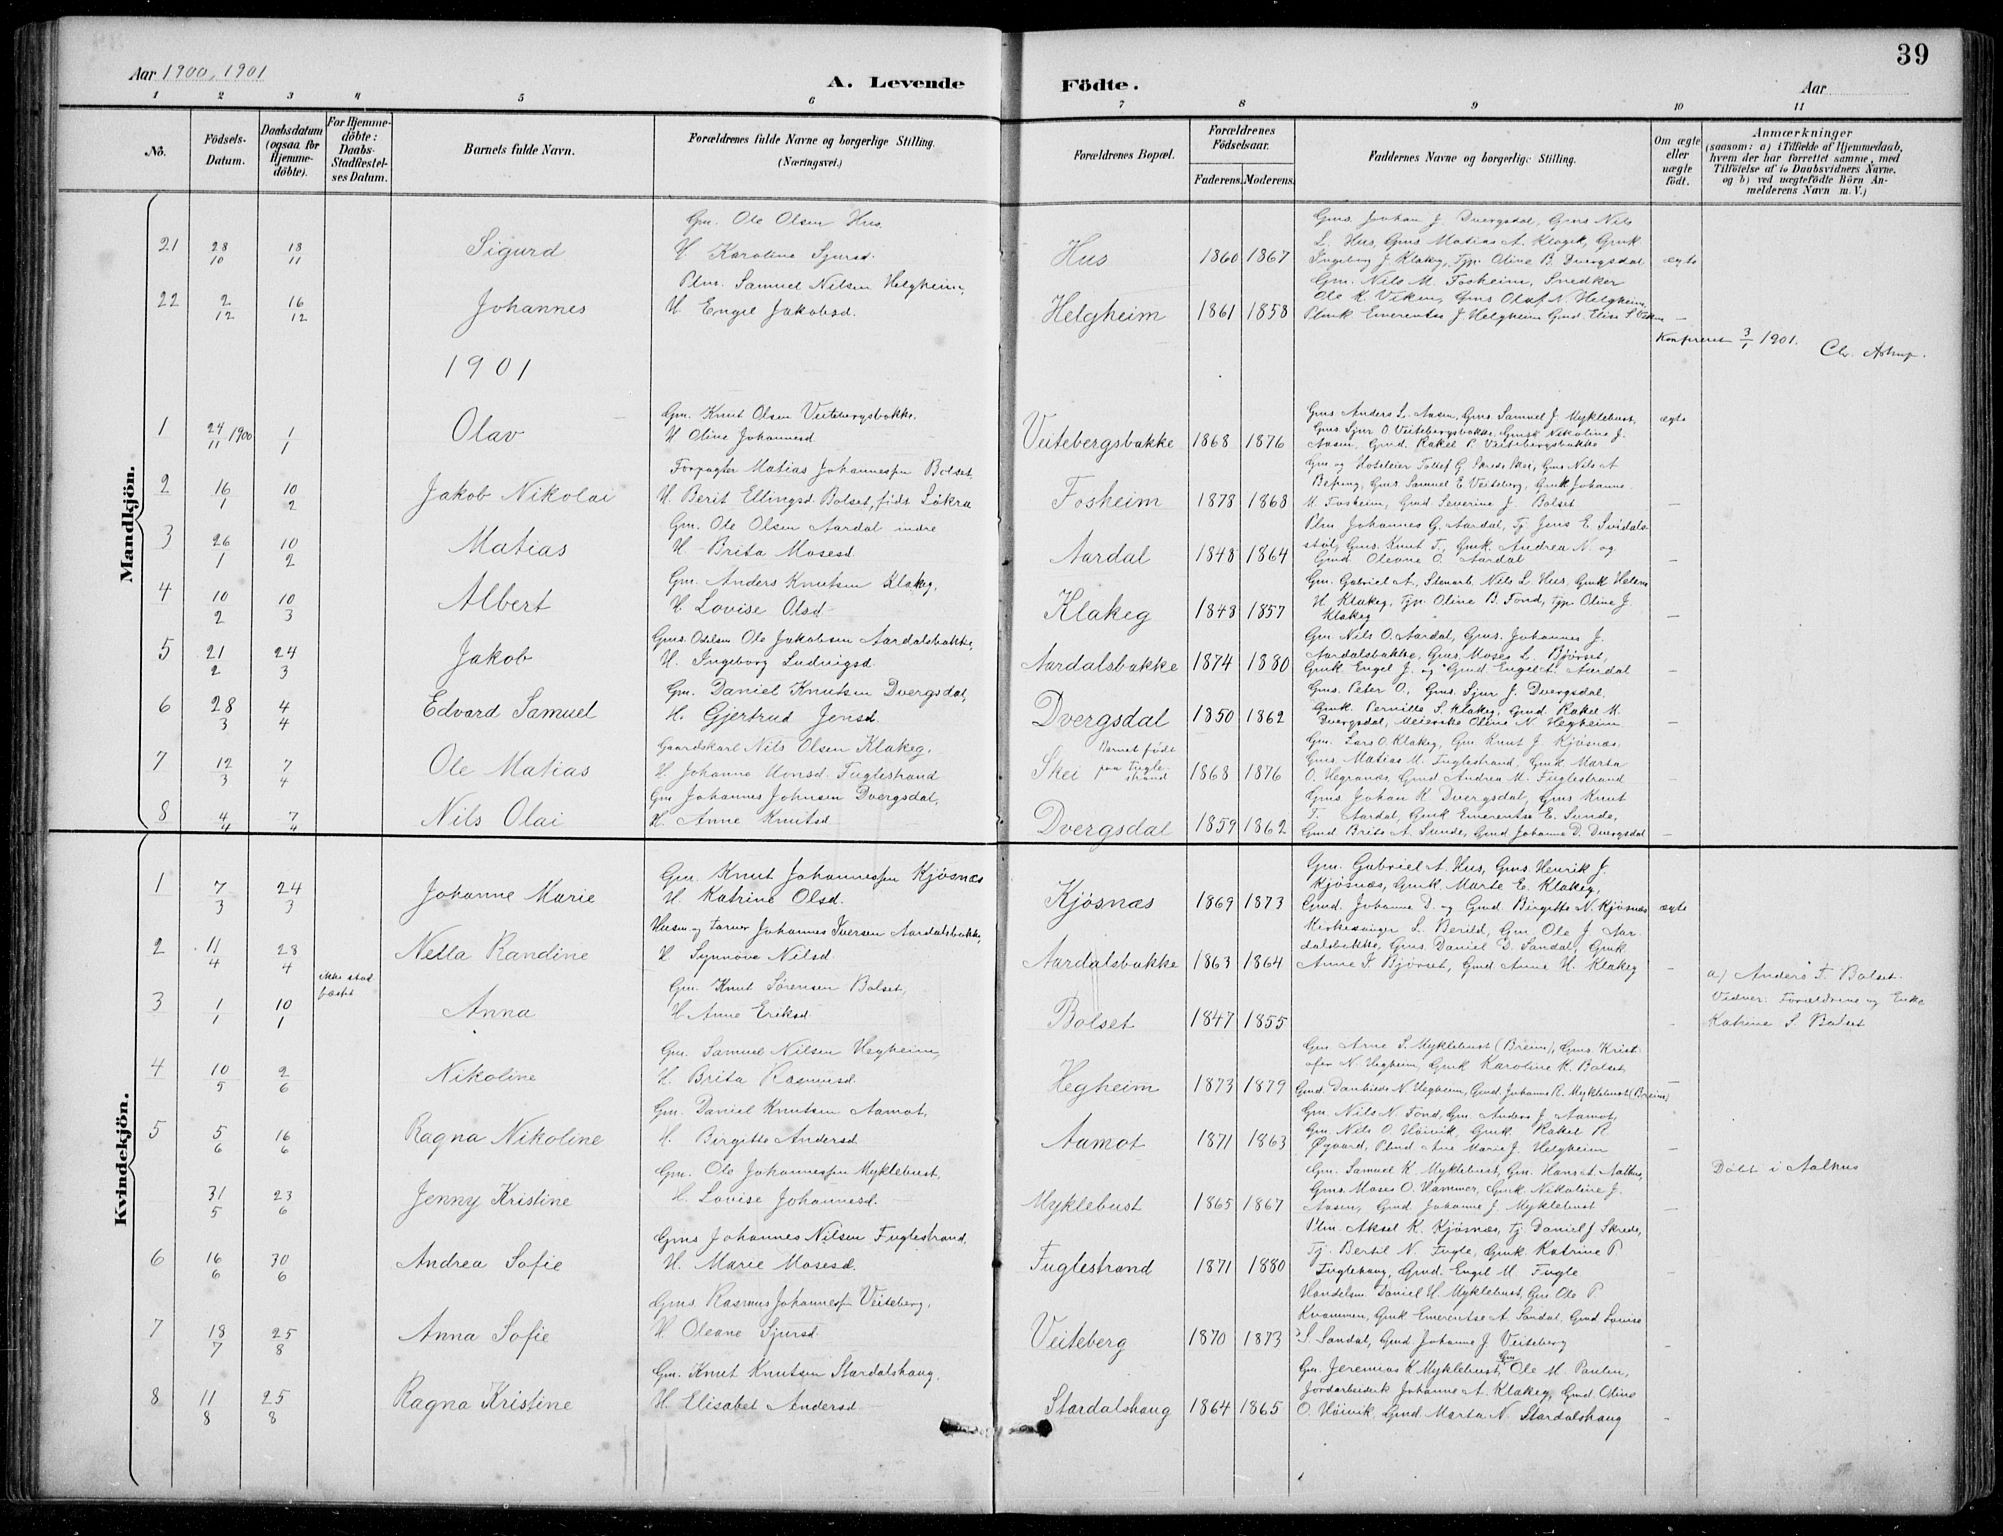 39
Aar 1900, 1901
A. Levende Födte.
Aar
1 2 3 4 5 6 7 8 9 10 11
No.
Födsels-Datum.
Daabsdatum (ogsaa for Hjemme-döbte).
For Hjemme-döbte: Daabs-Stadfæstel-ses Datum.
Barnets fulde Navn.
Forældrenes fulde Navne og borgerlige Stilling. (Næringsvei.)
Forældrenes Bopæl.
Forældrenes Födselsaar.
Faderens. Moderens.
Faddernes Navne og borgerlige Stilling.
Om ægte eller uægte födt.
Anmærkninger
(saasom: a) i Tilfælde af Hjemmedaab,
hvem der har forrettet samme, med
Tilföielse af to Daabsvidners Navne.
og b) ved uægtefödte Börn An-
melderens Navn m. V.)
Mandkjön.
21 28/10 18/11 Sigurd
Gm. Ole Olsen Hus
H. Karoline Sjursd.
Hus 1860 1867
Gms. Johan J. Dvergsdal, Gms Nils
L. Hus, Gms Matias A. Klagik, Gmk
Ingeborg J. Klakeg, Tjp. Oline B. Dvergsdal ægte
22 2/12 16/12 Johannes
Plm. Samuel Nilsen Helgheim,
H. Engel Jakobsd.
Helgheim 1861 1858
Gm. Nils M. Fosheim, Snedker
Ole K. Viken, Gms Olaf N. Helgheim,
Plmk Emerentse J. Helgheim Gmd. Elise S. Viken —
Konfereret 3/1 1901. Chr. Astrup.
1901
1 24/11 1900 1/1 Olav
Gm. Knut Olsen Veitebergsbakke.
H. Oline Johannesd
Veitebergsbakke 1868 1876
Gms Anders L. Aasen, Gms. Samuel J. Myklebust, ægte
Gms. Sjur O. Veitebergsbakke, Gmsk Nikoline J.
Aasen, Gmd. Rakel P. Veitebergsbakke
2 16/1 10/2 Jakob Nikolai
Forpagter Matias Johannesen Bolset,
H. Berit Ellingsd. Bolset, föds Lökra
Fosheim 1878 1868
Gm og Hoteleier Tollef G. Skrede Skei, Gms Nils A
Befring, Gms Samuel E. Veiteberg, Gmk Johanne
M. Fosheim, Gmd Severine J. Bolset
3 26/1 10/2 Matias
Gm. Ole Olsen Aardal indre
H. Brita Mosesd
Aardal 1848 1864
Plm Johannes G. Aardal, Tj. Jens E. Svidals-
stöl, Gms. Knut T., Gmk. Andrea N. og
Gmd. Oleane O. Aardal —
4 10/2 10/3 Albert
Gm. Anders Knutsen Klakeg,
H. Lovise Olsd.
Klakeg 1848 1857
Gm. Gabriel A., Stenarb. Nils L. Hus, Gmk Helene
H. Klakeg, Tjp. Oline B. Fond, Tjp. Oline J.
Klakeg —
5 21/2 24/3 Jakob
Gms. Ole Jakobsen Aardalsbakke,
H. Ingeborg Ludvigsd.
Aardalsbakke 1874 1880
Gm Nils O. Aardal, Gms. Johannes J.
Aardalsbakke, Gms. Moses L. Bjørset,
Gmk Engel J. og Gmd Engel A. Aardal —
6 28/3 4/4 Edvard Samuel
Gm. Daniel Knutsen Dvergsdal,
H. Gjertrud Jensd.
Dvergsdal 1850 1862
Gms. Peter O., Gms. Sjur J. Dvergsdal,
Gmk. Pernille S. Klakeg, Gmd. Rakel M.
Dvergsdal, Meierske Oline N. Hegheim —
7 12/3 7/4 Ole Matias
Gaardskarl Nils Olsen Klakeg,
H. Johanne Monsd. Fuglestrand
Skei Barnet födt paa Fugle-strand 1868 1876
Gm. Lars O. Klakeg, Gm Knut J. Kjösnæs,
Gms. Matias M. Fuglestrand, Gmk Marta
O. Hegranæs, Gmd Andrea M. Fuglestrand —
8 4/4 7/4 Nils Olai
Gm Johannes Johnsen Dvergsdal,
H. Anne Knutsd
Dvergsdal 1859 1862
Gms. Johan K. Dvergsdal, Gms Knut
T. Aardal, Gmk Emerentse E. Sunde,
Gmd Brite A. Sunde, Gmd Johanne D. Dvergsdal —
Kvindekjön.
1 7/3 24/3 Johanne Marie
Gm. Knut Johannessen Kjösnæs
H. Katrine Olsd.
Kjösnæs 1869 1873
Gm. Gabriel A. Hus, Gms. Henrik J.
Kjösnæs, Gmk. Marte E. Klakeg,
Gmd. Johanne D. og Gmd. Birgitte N. Kjösnæs ægte
2 11/4 28/4 Nella Randine
Husm og Garver Johannes Iversen Aardalsbakke,
H. Synnöve Nilsd.
Aardalsbakke 1863 1864
Kirkesanger L. Berild, Gm, Ole J. Aar-
dalsbakke, Gms. Daniel D. Sandal, Gmk
Anne T. Bjørset, Gmd Anne H. Klakeg —
3 1/1 10/1 ikke stad fæstet Anna
Gm. Knut Sörensen Bolset,
H. Anne Eriksd.
Bolset 1847 1855 —
a) Anders T. Bolset.
Vidner: Forældrene og Enke
Katrine S. Bolset
4 10/5 2/6 Nikoline
Gm. Samuel Nilsen Hegheim,
H. Brita Rasmusd.
Hegheim 1873 1879
Gm Arne S. Myklebust (Breim), Gms. Krist-
ofer N. Hegheim, Gmk Karoline K. Bolset
Gmd. Danbilde N. Hegheim, Gmd. Johanne R. Myklebust (Breim) —
5 5/6 16/6 Ragna Nikoline
Gm. Daniel Knutsen Aamot,
H. Birgitte Andersd.
Aamot 1871 1863
Gm. Nils N. Fond, Gm. Anders J. Aamot,
Gm. Nils O. Höivik, Gmk. Rakel R.
Øygard, Plmd Ane Marie J. Helgheim —
31/5 23/6 Jenny Kristine
Gm. Ole Johannessen Myklebust,
H. Lovise Johannesd.
Myklebust 1865 1867
Gm. Samuel K. Myklebust, Gm. Hans A. Aalhus,
Gms. Moses O. Hammer, Gmk. Nikoline J.
Aasen, Gmd. Johanne J. Myklebust —
Döbt i Aalhus
6 16/6 30/6 Andrea Sofie
Gms Johannes Nilsen Fuglestrand,
H. Marie Mosesd.
Fuglestrand 1871 1880
Plm. Aksel K. Kjösnæs, Tj. Daniel J Skrede,
Tj. Bertil N. Fugle, Gmk. Katrine P
Fuglehaug, Gmd. Engel M. Fugle —
7 18/7 25/8 Anna Sofie
Gms. Rasmus Johannessen Veiteberg,
H. Oleane Sjursd.
Veiteberg 1870 1873
Handelsm. Daniel H. Myklebust, Gm Ole P
Kvammen, Gmk Emerentse A. Sandal, Gmd Lovise
S. Sandal, Gmd Johanne J. Veiteberg —
8 11/8 25/8 Ragna Kristine
Gm. Knut Knutsen Stardalshaug,
H. Elisabet Andersd.
Stardalshaug 1864 1865
Gm. Jeremias K. Myklebust, Gm Ole M. Paulen,
Jordarbeidek Johanne A. Klakeg, Gmd. Oline
O. Höivik, Gmd Marta N. Stardalshaug —